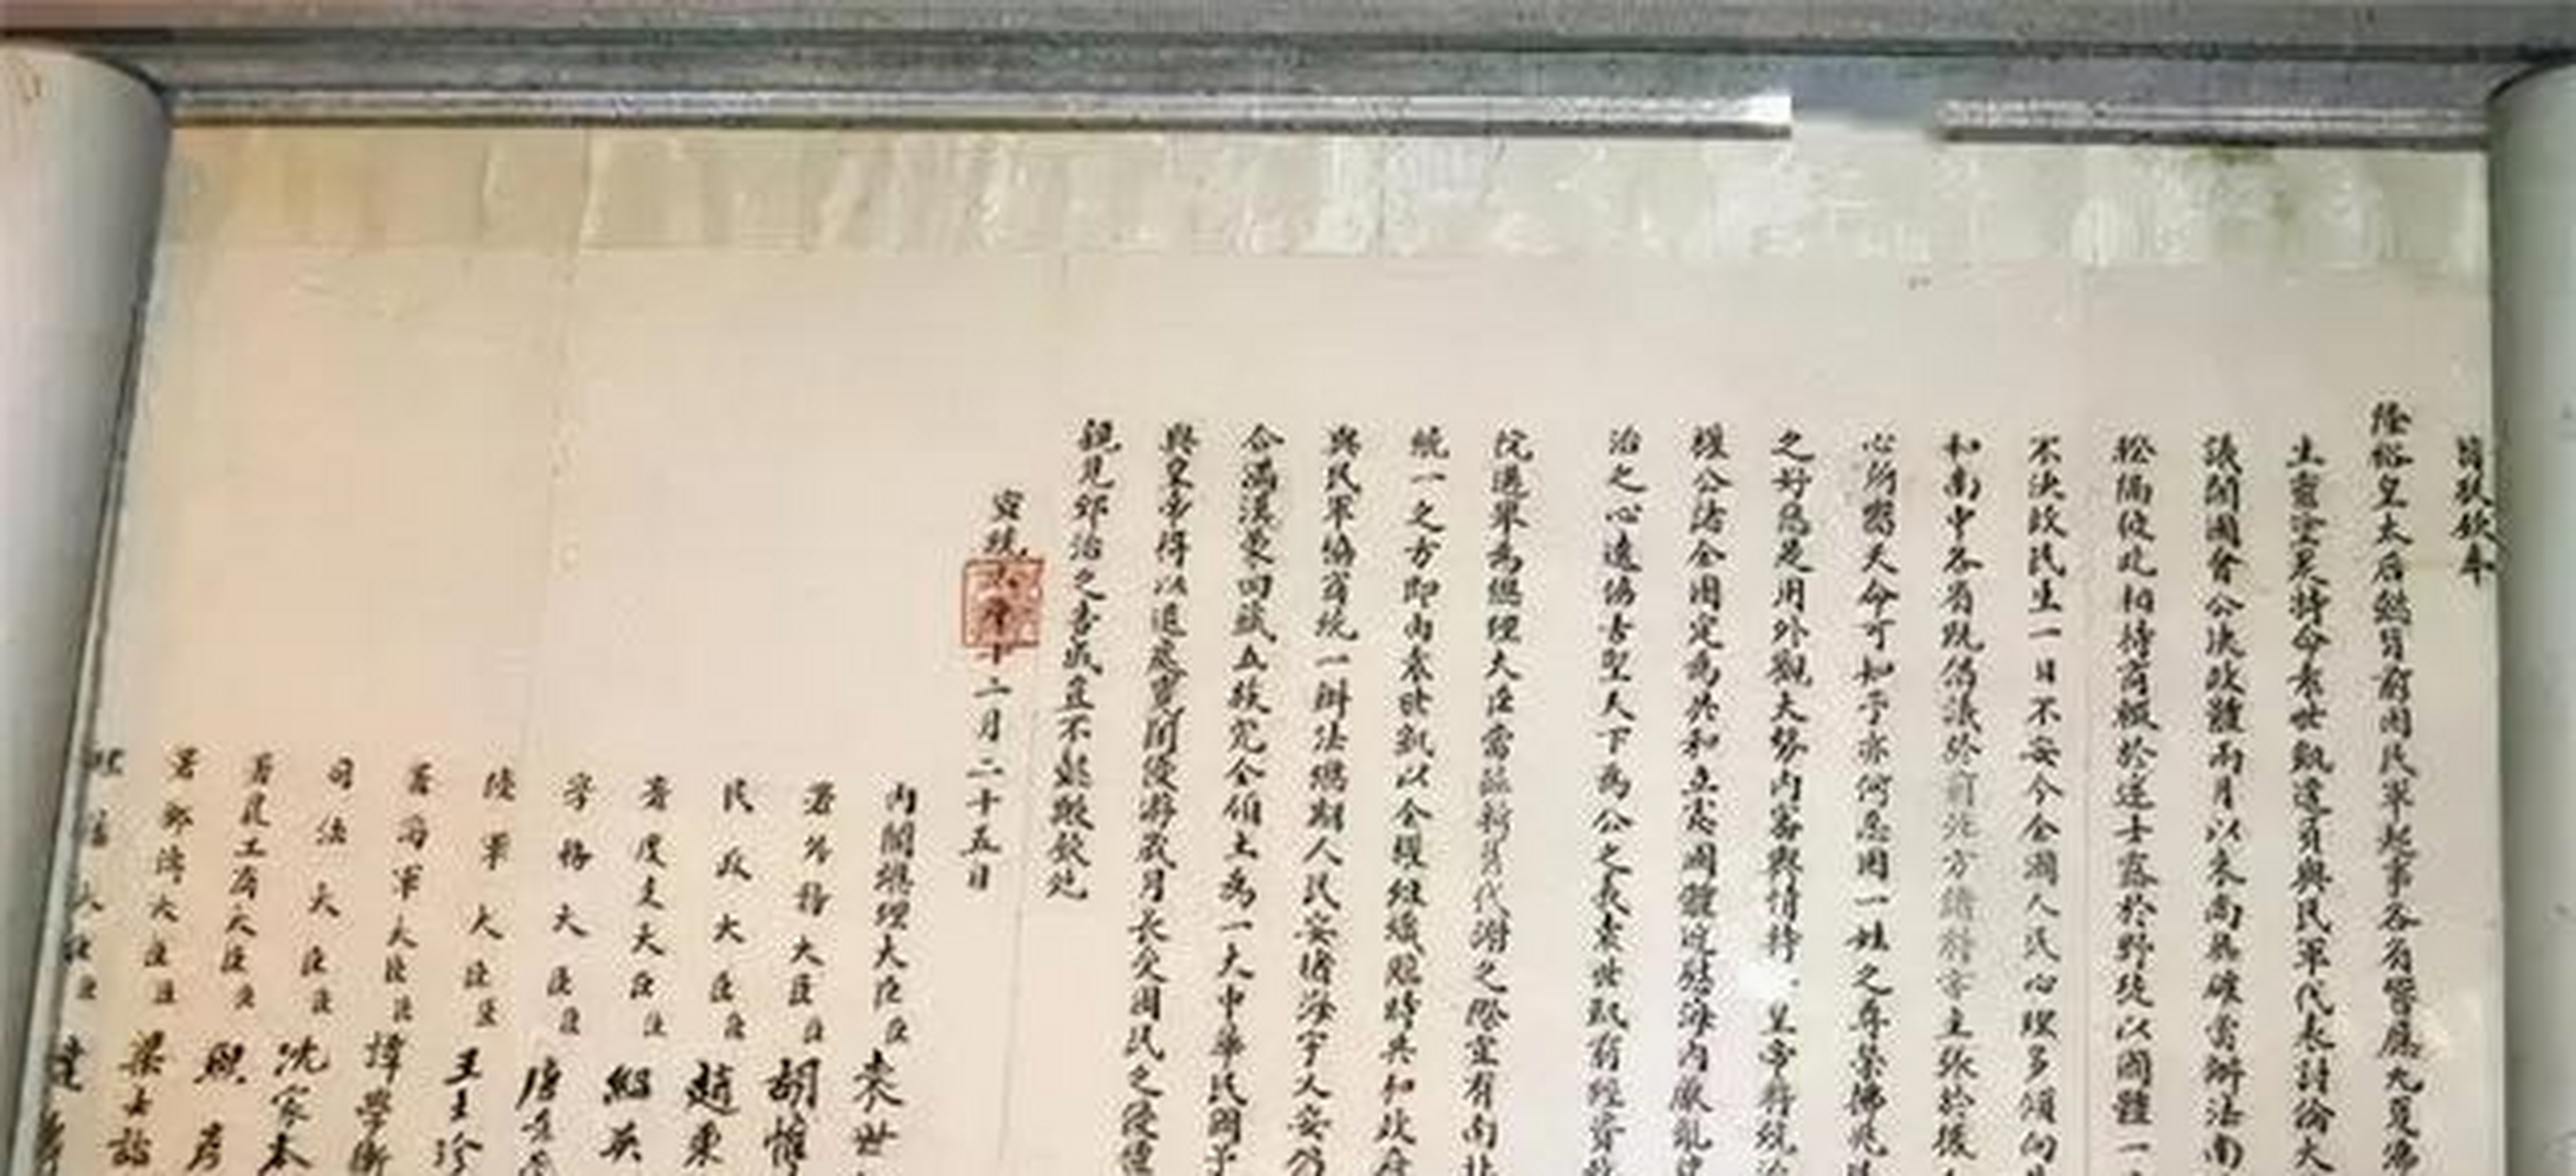 旨朕欽奉
隆裕皇太后懿旨前因民軍起事各省響應九夏沸
生靈塗炭特命袁世凱遣員與民軍代表討論大
議開國會公決政體兩月以來尚無確當辦法南
暌隔彼此相持商輟於途士露於野徒以國體一
不決故民生一日不安今全國人民心理多傾向共
和南中各省既倡議於前北方諸將亦主張於後
心所嚮天命可知予亦何忍因一姓之尊榮拂兆
之好惡是用外觀大勢內審輿情特 皇帝將統治
權公諸全國定為共和立憲國體近慰海內厭亂
治之心遠協古聖天下為公之義袁世凱前經資政
院選舉為總理大臣當茲新舊代謝之際宜有南北
統一之方即由袁世凱以全權組織臨時共和政府
與民軍協商統一辦法總期人民安堵海宇乂安仍
合滿漢蒙回藏五族完全領土為一大中華民國予
與皇帝得以退處寬閒優游歲月長受國民之優禮
親見郅治之告成豈不懿歟欽此
宣統三年十二月二十五日
內閣總理大臣臣袁世
署外務大臣臣胡惟
民政大臣臣趙秉
署度支大臣臣紹英
學務大臣臣唐景
陸軍大臣臣王士珍
署海軍大臣臣譚學衡
司法大臣臣沈家本
署農工商大臣臣熙彥
署郵傳大臣臣梁士詒
理藩大臣臣達壽